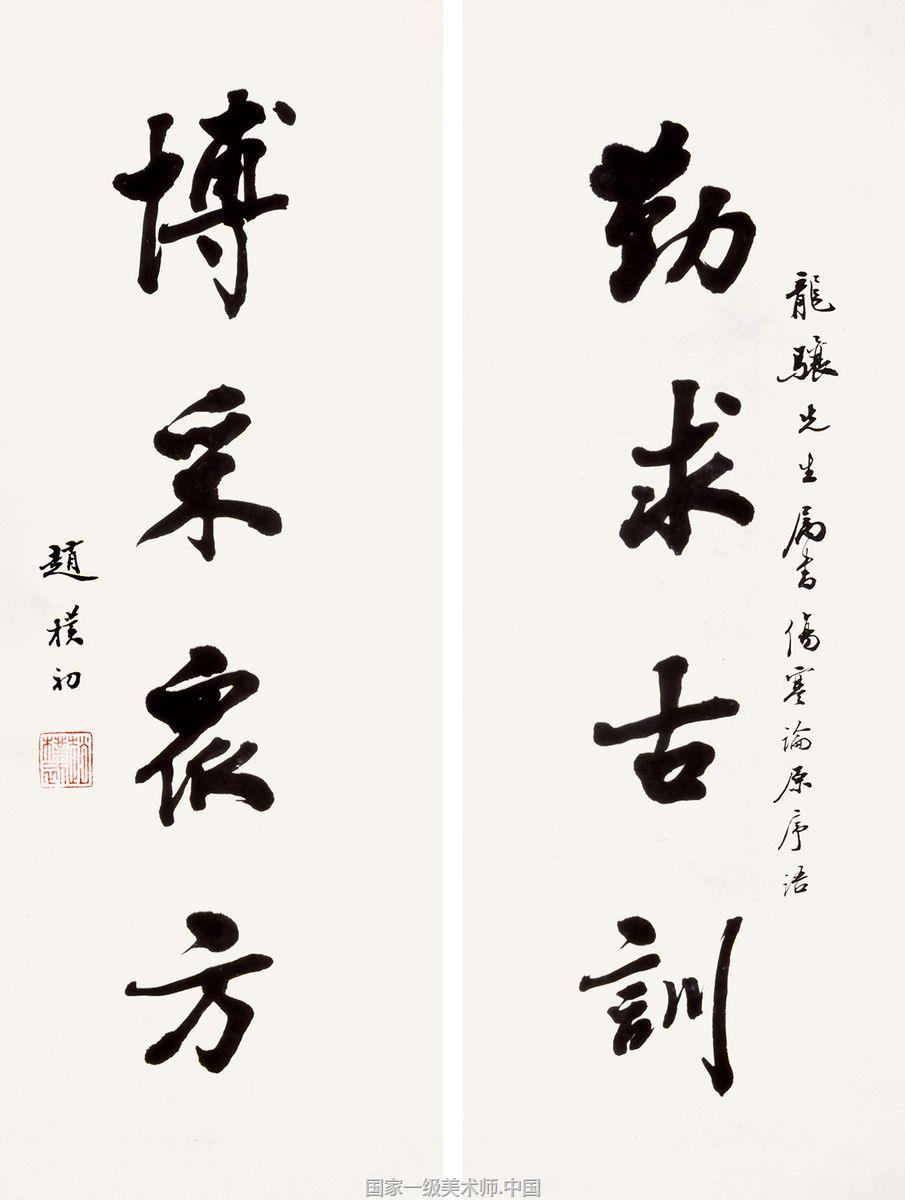 龍驤先生属書傷寒論原序语
勤求古訓
博采衆方
趙樸初
趙樸初
国家一级美术师.中国